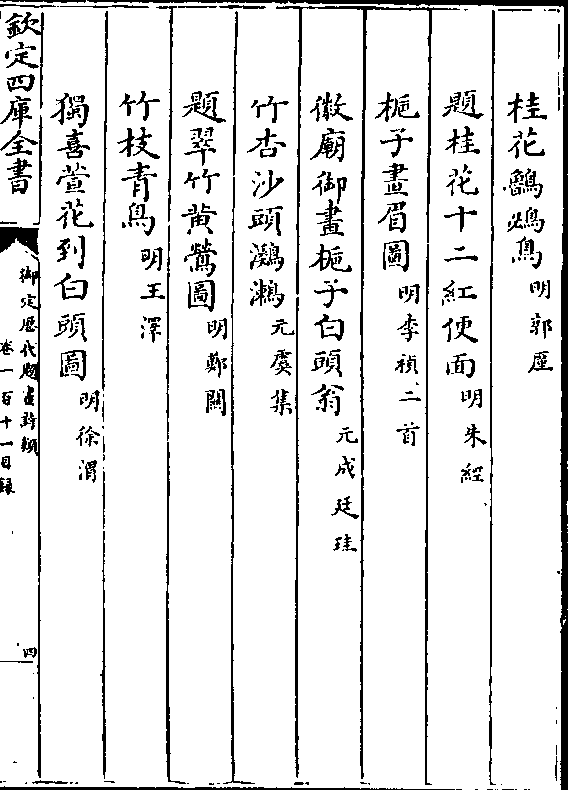 桂花鳥 明郭厪
題桂花十二紅便面 明朱經
梔子畫眉圖 明李禎 二首
徽廟御畫梔子白頭翁 元成廷珪
竹杏沙頭鸂鶒 元虞集
題翠竹黃鶯圖 明鄭關
竹枝青鳥 明王澤
獨喜萱花到白頭圖 明徐渭
欽定四庫全書
御定歷代題畫詩類
卷一百十一目錄
四